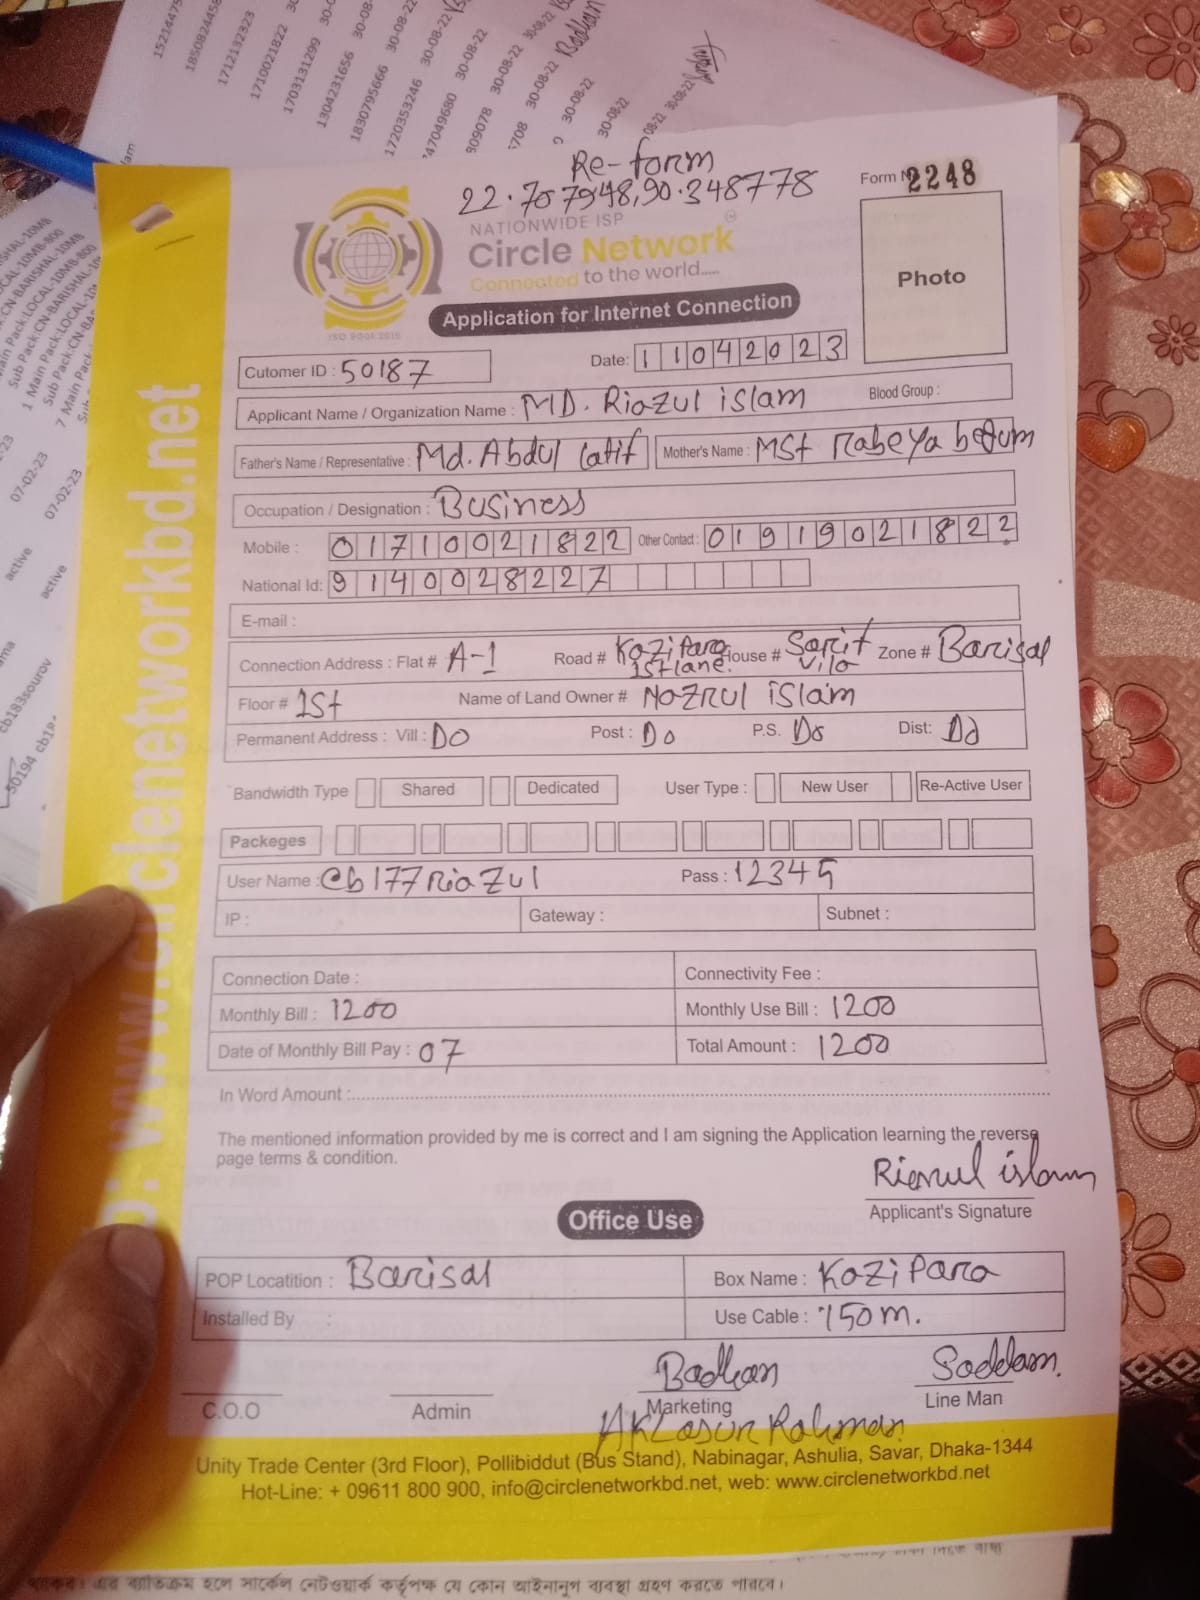 15214475
1850824458
1712132323
1710021822 30
1703131299 30-0
1304231656 30-08-
1830795666 30-08-22
1720353246 30-08-22
47049680 30-08-22
809078 30-08-22 Badhan
708 30-08-22
30-08-22
30-08-22
08-22 30-08-22
Re-form
22.707948,90.348778
Form 2248
NATIONWIDE ISP
Circle Network
Connected to the world.....
ISO 9001:2015
Photo
Application for Internet Connection
Cutomer ID : 50187
Date: 11042023
Applicant Name / Organization Name : MD. Riazul islam Blood Group :
Father's Name / Representative : Md. Abdul Latif Mother's Name : MSt Rabeya begum
Occupation / Designation : Business
Mobile : 01710021822 Other Contact : 01919021822
National Id: 9140028227
E-mail :
Connection Address : Flat # A-1 Road # Kazi Para 1st lane. House # Sarit vila Zone # Barisal
Floor # 1St Name of Land Owner # Nozrul islam
Permanent Address : Vill : DO Post : Do P.S. Do Dist: Do
Bandwidth Type Shared Dedicated User Type : New User Re-Active User
Packeges
User Name : Cb177RiaZul Pass : 12345
IP : Gateway : Subnet :
Connection Date : Connectivity Fee :
Monthly Bill : 1200 Monthly Use Bill : 1200
Date of Monthly Bill Pay : 07 Total Amount : 1200
In Word Amount :
The mentioned information provided by me is correct and I am signing the Application learning the reverse
page terms & condition.
Riazul islam
Applicant's Signature
Office Use
POP Locatition : Barisal Box Name : Kazi Para
Installed By : Use Cable : 150m.
Badhan Saddam.
C.O.O Admin Marketing Line Man
Aklasur Rahman
Unity Trade Center (3rd Floor), Pollibiddut (Bus Stand), Nabinagar, Ashulia, Savar, Dhaka-1344
Hot-Line: + 09611 800 900, info@circlenetworkbd.net, web: www.circlenetworkbd.net
: www.circlenetworkbd.net
07-02-23
07-02-23
active
active
cb183sourov
50194 cb18
এর ব্যতিক্রম হলে সার্কেল নেটওয়ার্ক কর্তৃপক্ষ যে কোন আইনানুগ ব্যবস্থা গ্রহণ করতে পারবে।